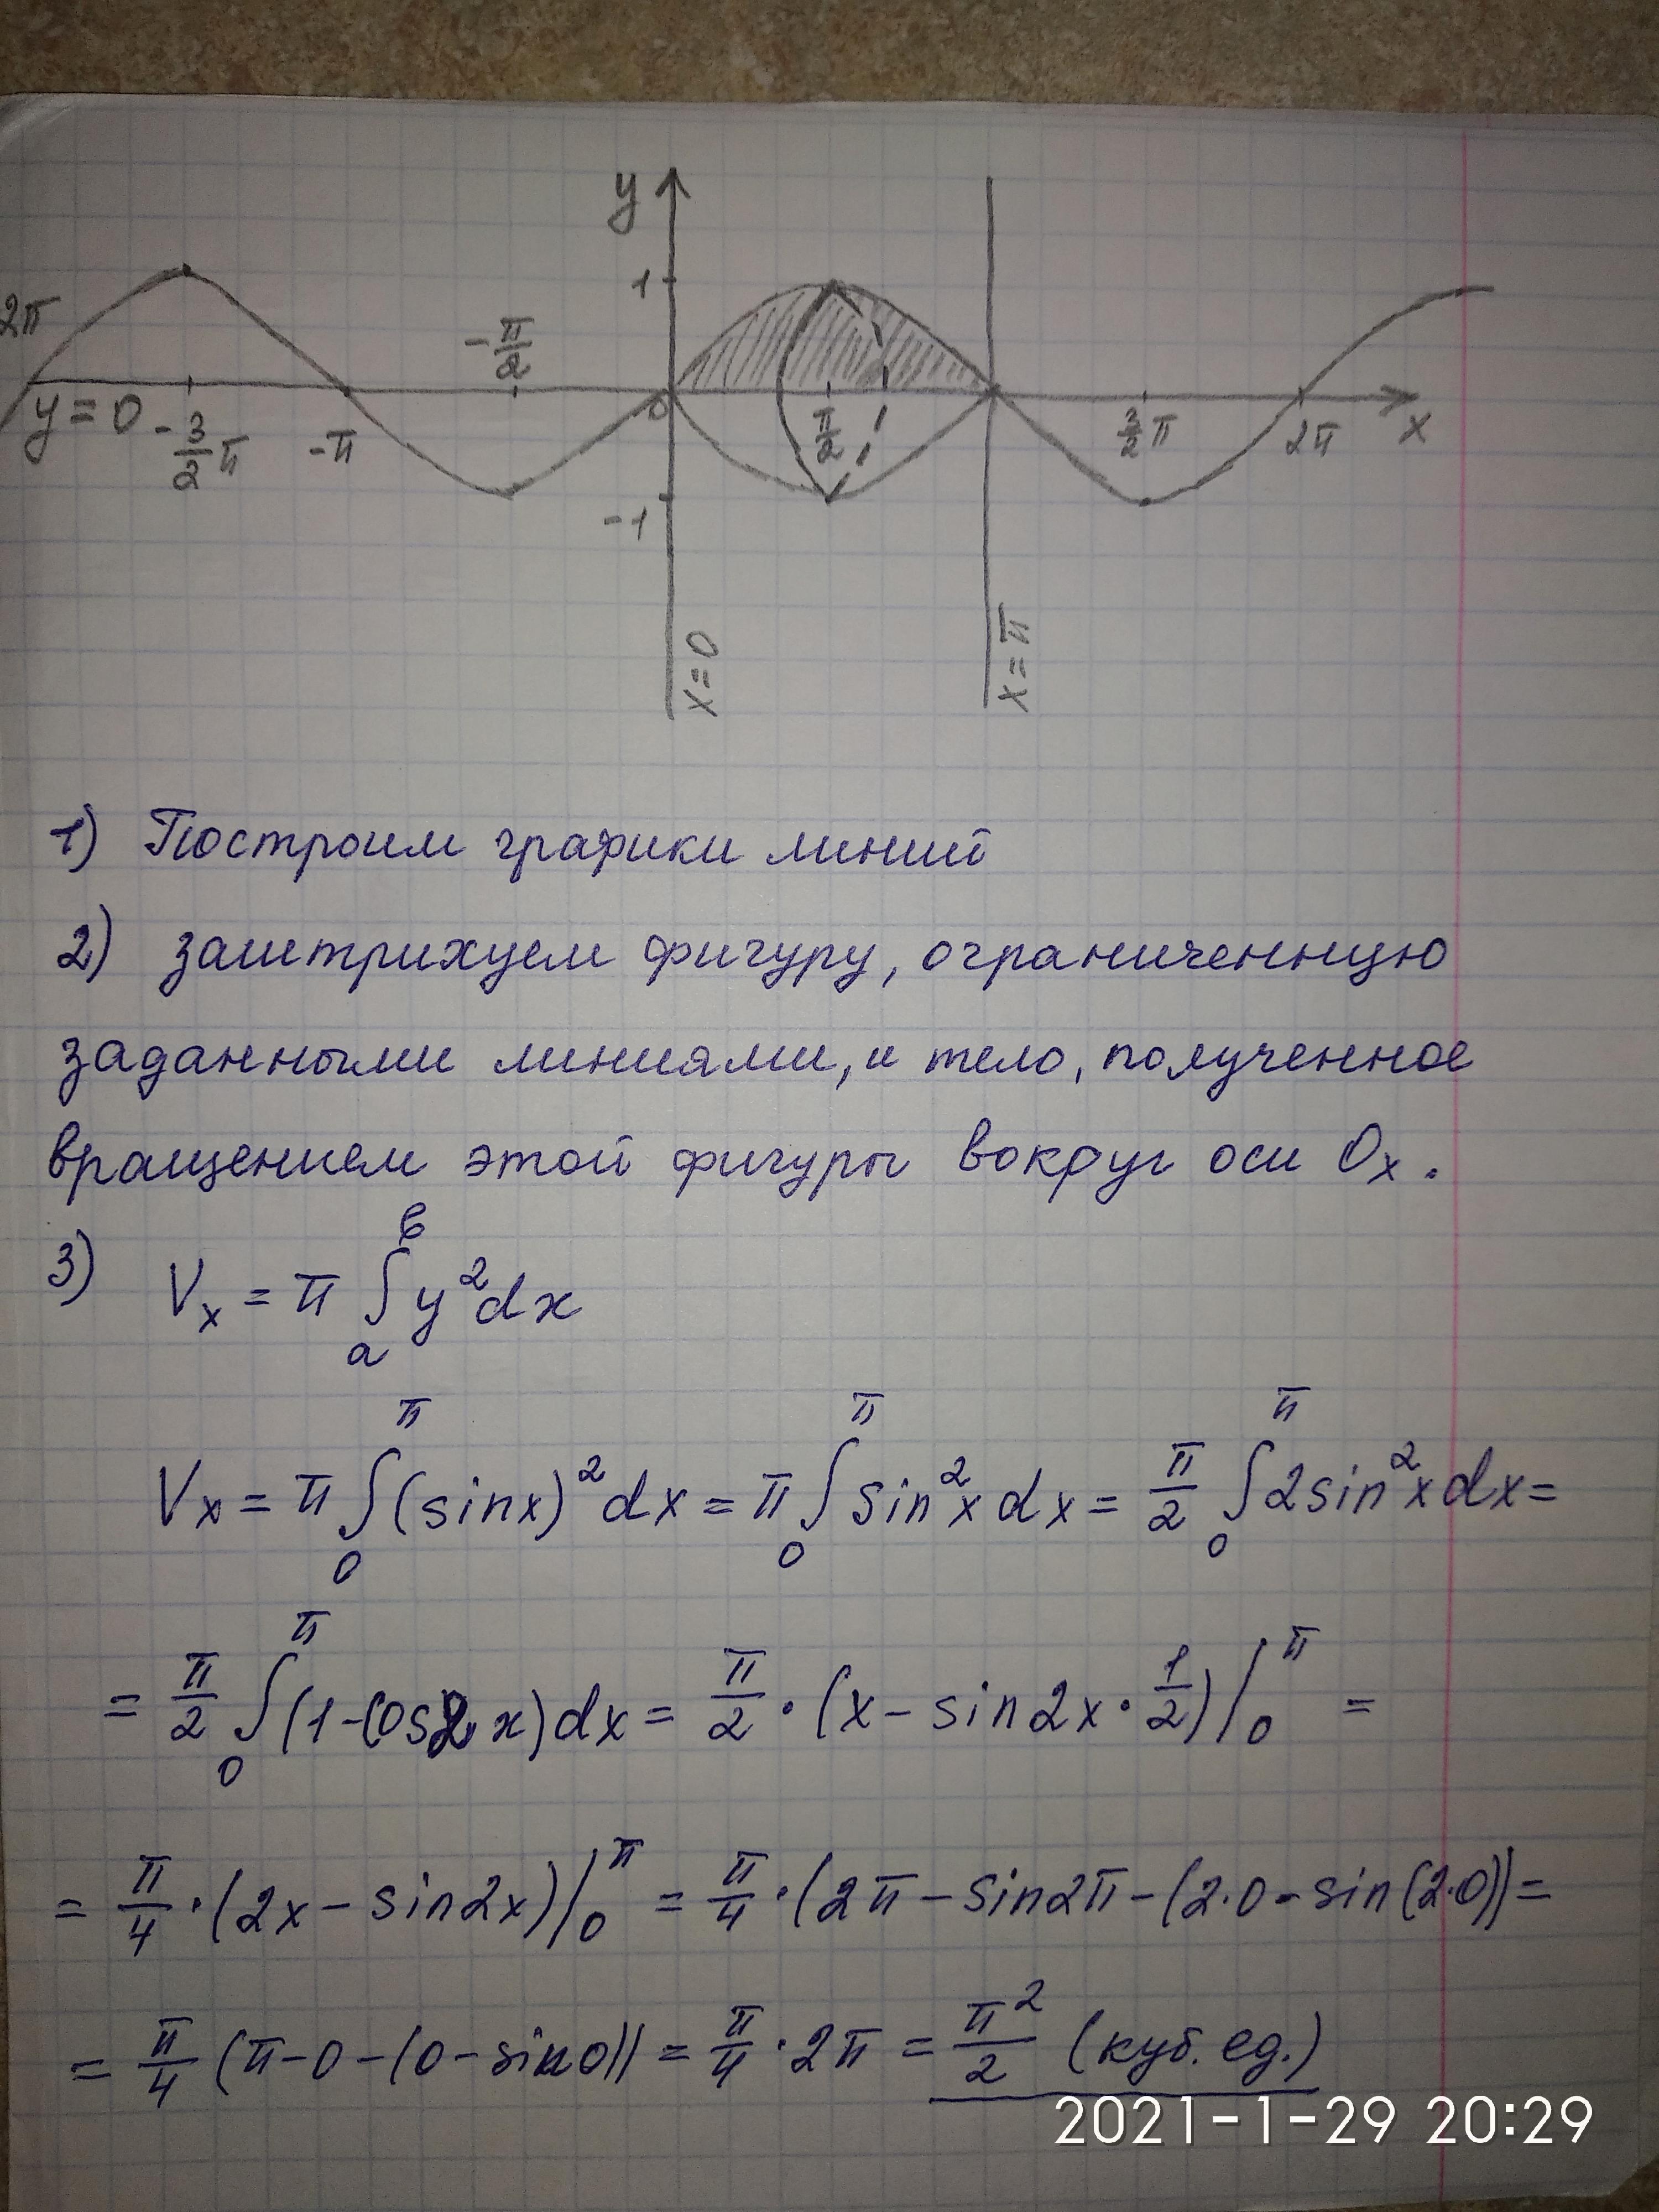 y
1
2π
-π/2
0
y=0
-3/2 π
-π
π/2
3/2 π
2π
x
-1
x=0
x=π
1) Построим графики линий
2) заштрихуем фигуру, ограниченную
заданными линиями, и тело, полученное
вращением этой фигуры вокруг оси Ox.
3) Vx = π ∫_a^b y² dx
Vx = π ∫_0^π (sinx)² dx = π ∫_0^π sin²x dx = π/2 ∫_0^π 2sin²x dx =
= π/2 ∫_0^π (1-cos2x)dx = π/2 · (x - sin2x · 1/2)|_0^π =
= π/4 · (2x - sin2x)|_0^π = π/4 · (2π - sin2π - (2·0 - sin(2·0)) =
= π/4 (π-0-(0-sin0)) = π/4 · 2π = π²/2 (куб. ед.)
2021-1-29 20:29